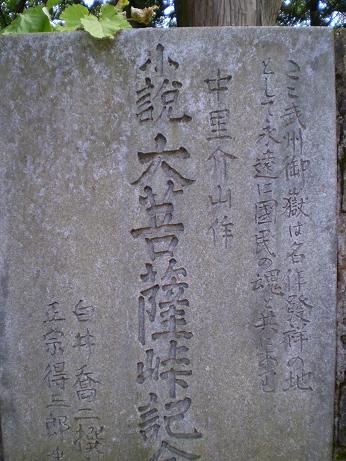 ここ武州御嶽は名作發祥の地
として永遠に國民の魂と共にあ
中里介山作
小説 大菩薩峠記念
白井喬二撰
正宗得三郎